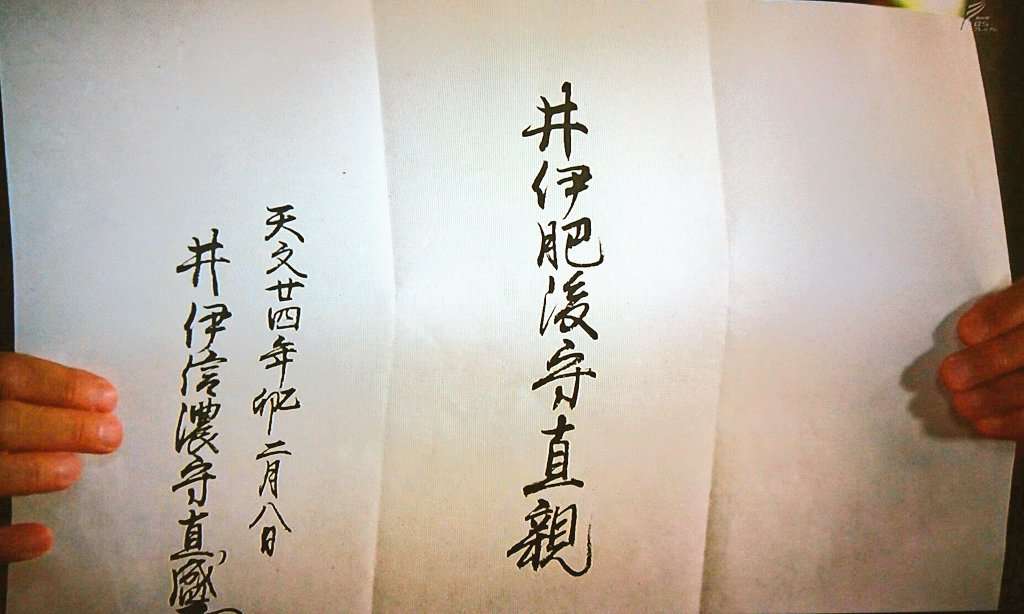 井伊肥後守直親
天文廿四年卯乙二月八日
井伊信濃守直盛